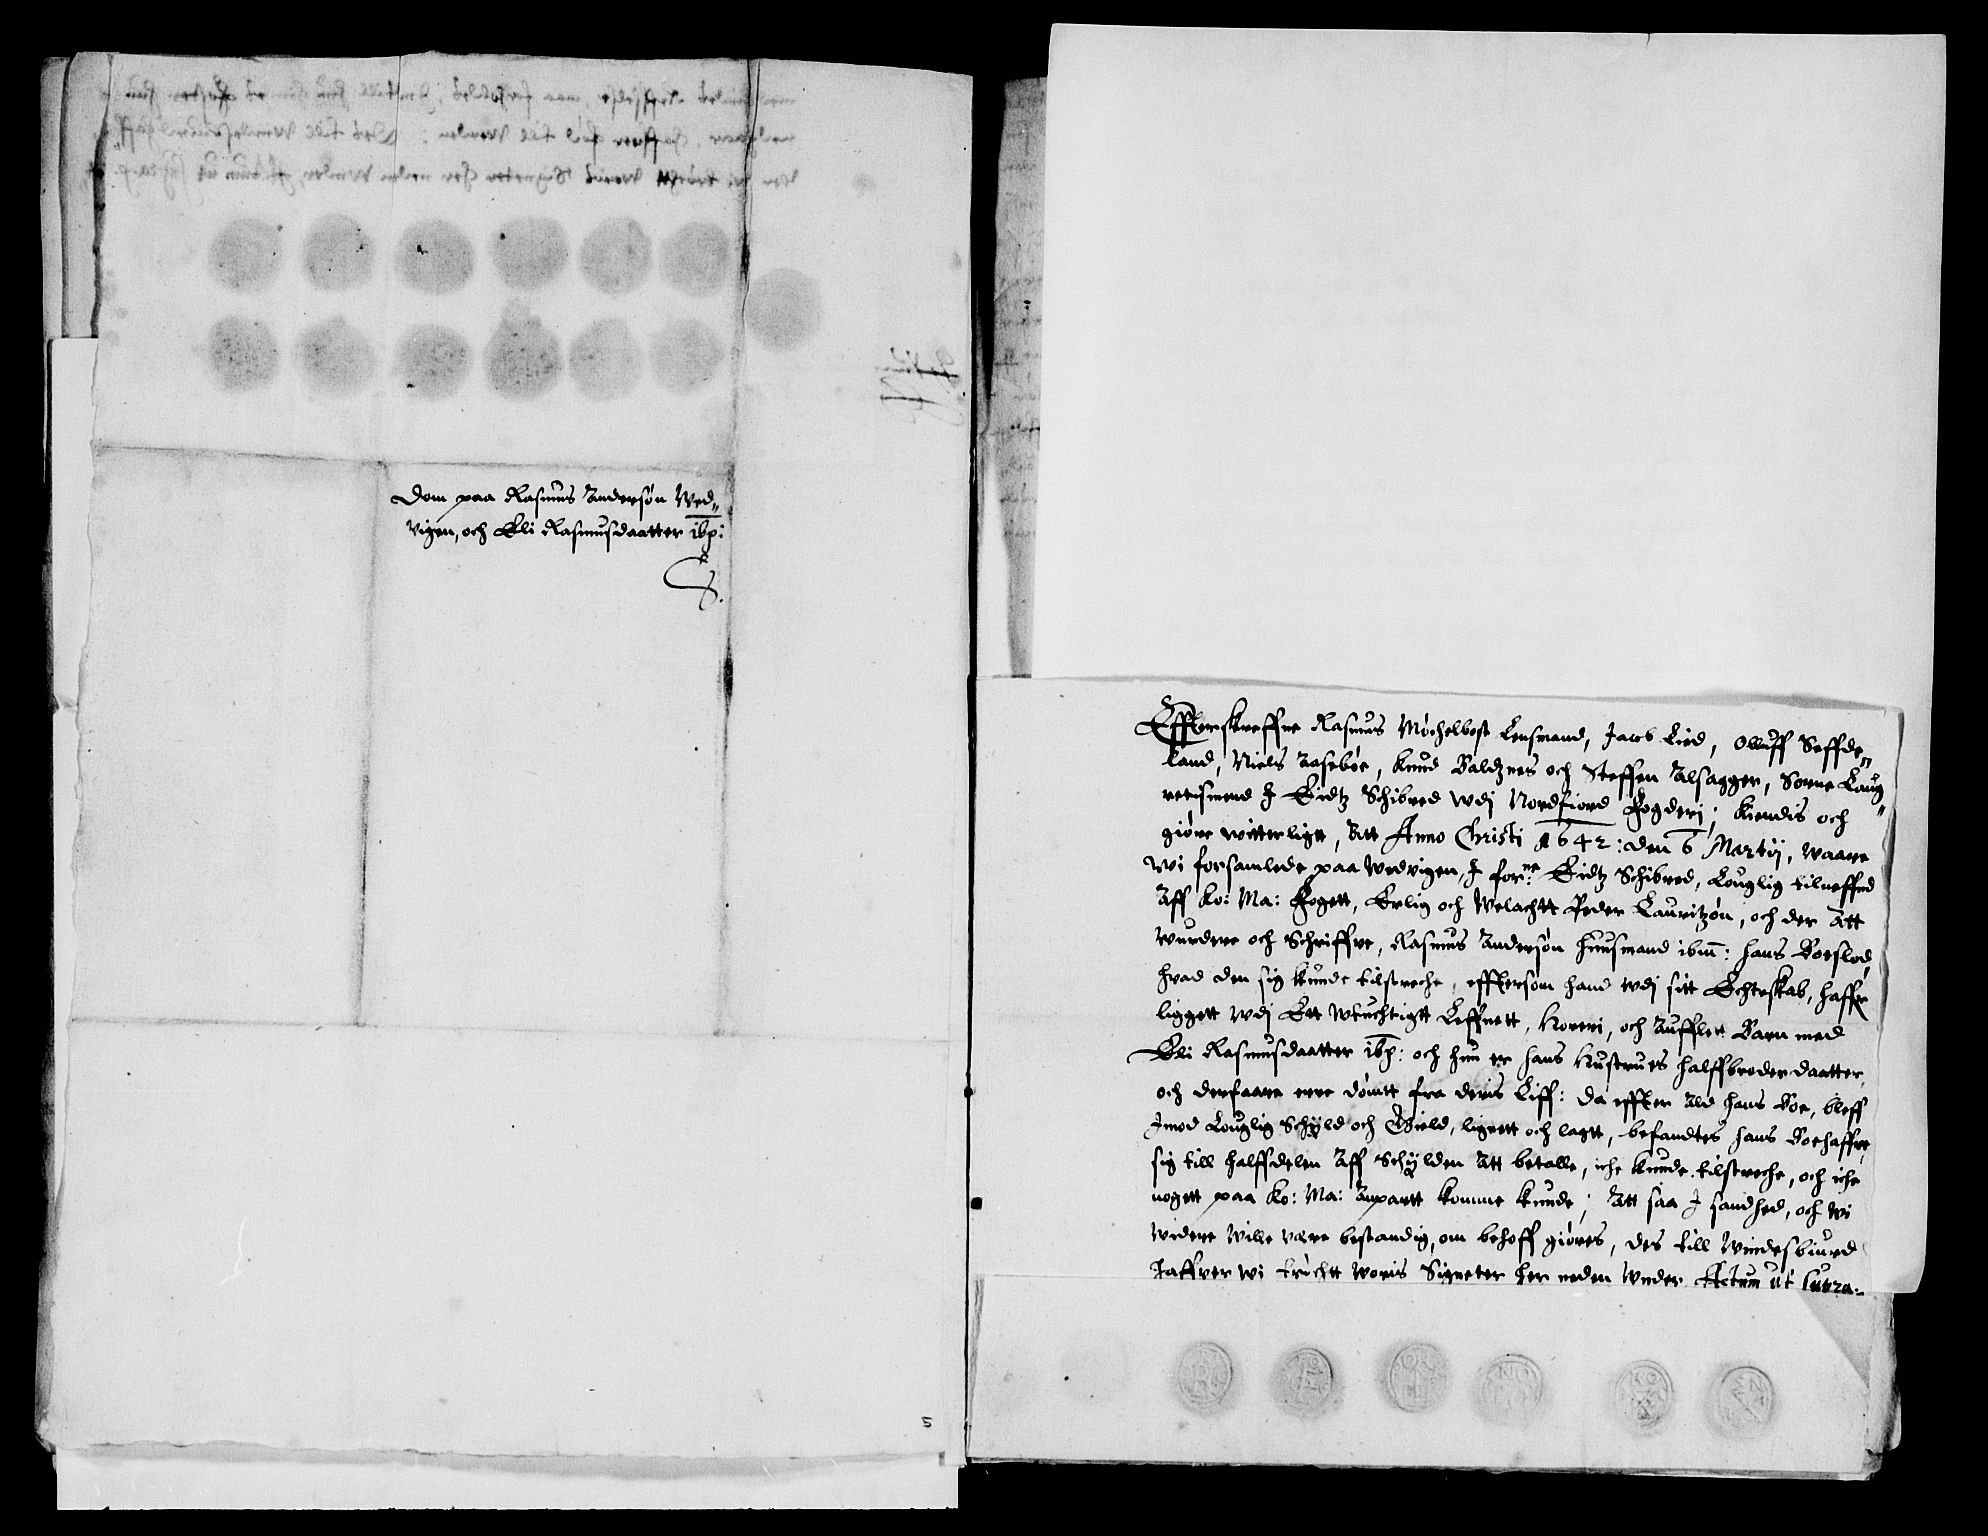 Dom paa Rasmus Andersøn Wed„
vigen, och Eli Rasmusdaatter ibp:
5
Effterskreffne Rasmus Møchelbost Lensmand, Jacob Lied, Olluff Seffde„
land, Niels Aasebøe, Knud Baldznes och Steffen Alsagger, Sorne Laug„
retismend J Eidtz Schibred wdj Nordfiord Fogderj; Kiendis och
giøre witterligt, Att Anno Christi 1642: den 6 Martij, waare
wi forsamlede paa Wedvigen, J forne: Eidtz Schibred, Louglig tilneffnd
Aff Ko: Ma: Fogett, Erlig och Welachtt Peder Lauritzøn, och der Att
wurdere och Schriffve, Rasmus Andersøn Huusmand ibm: hans Boeslod
hvad den sig kunde tilstreche, effttersom hand wdj sitt Echteskab, haffr
liggett wdj Ett wtuchtigtt Leffnett, Horeri, och Aufflet Barn med
Eli Rasmusdaatter ibp: och hun er hans Hustrues halffbroder daatter,
och derfaare ere dømtt fra deris Liff: da effter Ald hans Boe, bleff
Jmod Louglig Schÿld och Gield, lignett och lagtt, befandtes hans Boehaffve,
sig till halffdelen Aff Schÿlden Att betalle, iche kunde tilstreche, och iche
nogett paa Ko: Ma: Anpartt komme kunde; Att saa J sandhed, och wi
widere wille være bestandig, om behoff giøres, des till Windesbiurd
Haffver wi trÿchtt woris Signeter her neden Wnder. Actum ut supra: